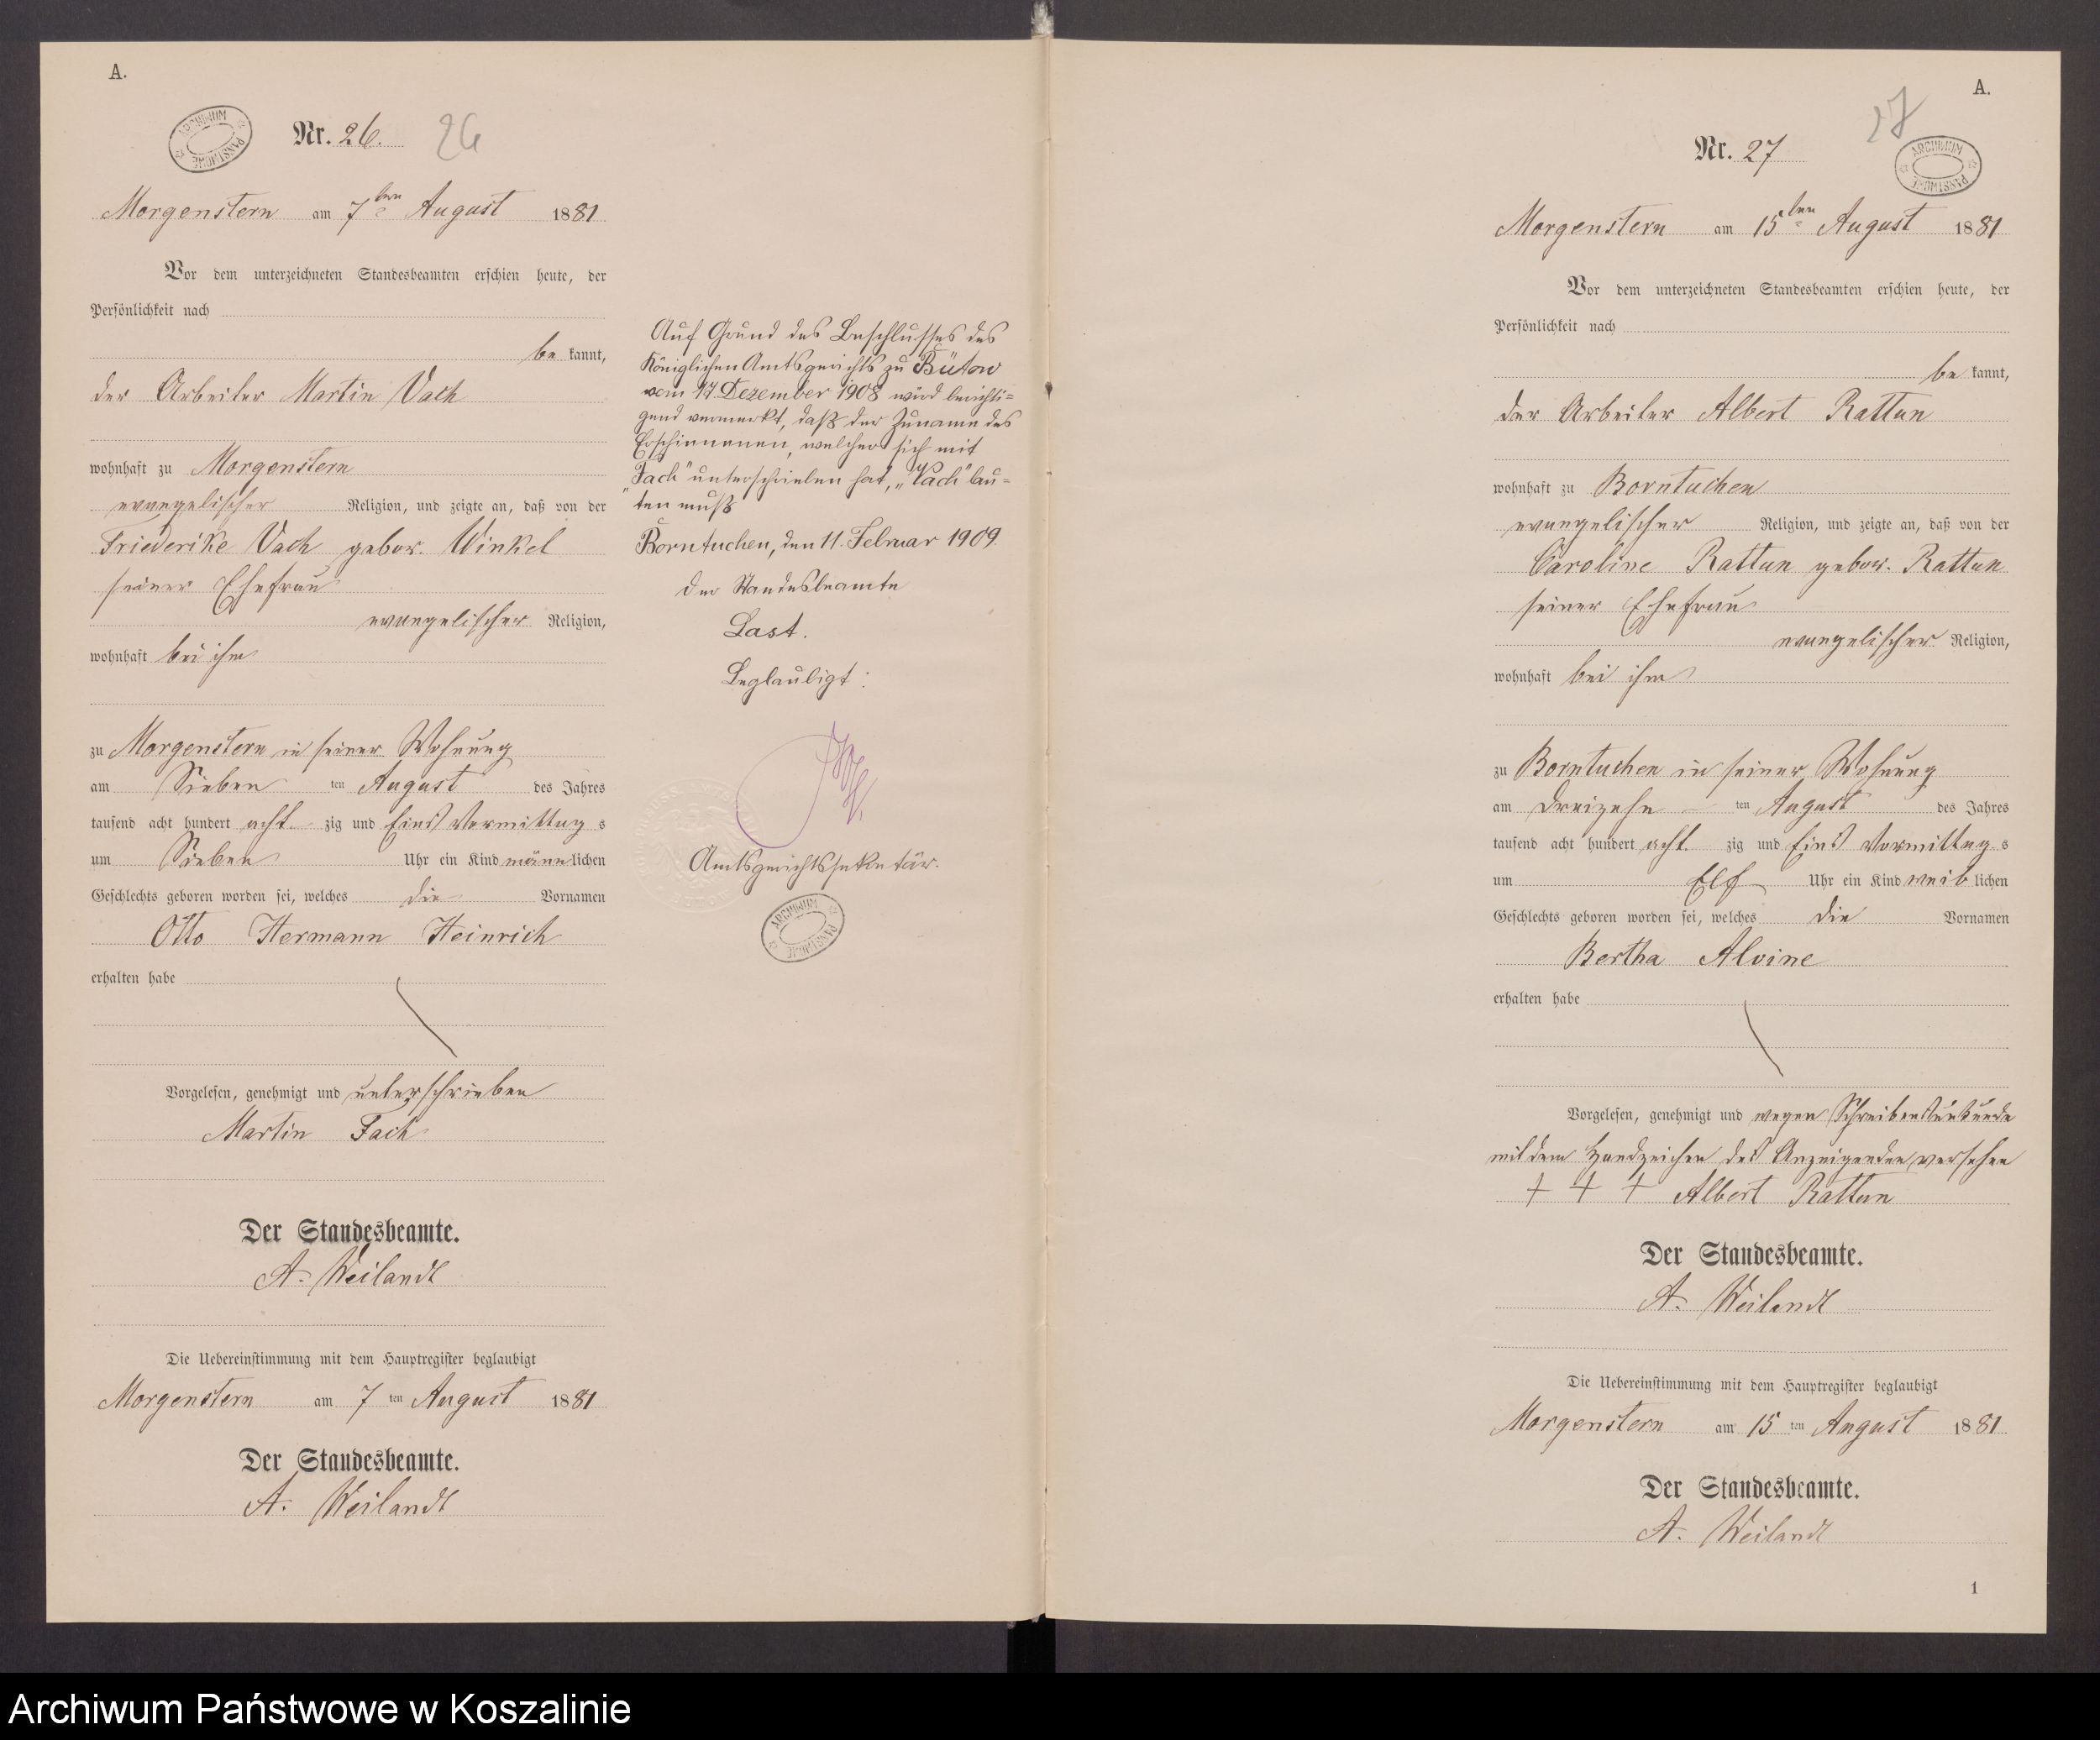 A.
ARCHIWUM PAŃSTWOWE
Nr. 26. 26
Morgenstern am 7ten August 1881
Vor dem unterzeichneten Standesbeamten erschien heute, der
Persönlichkeit nach
be kannt,
der Arbeiter Martin Vach
wohnhaft zu Morgenstern
evangelischer Religion, und zeigte an, daß von der
Friederike Vach gebor. Winkel
seiner Ehefrau
evangelischer Religion,
wohnhaft bei ihm
zu Morgenstern in seiner Wohnung
am Sieben ten August des Jahres
tausend acht hundert acht zig und Eins Vormittag s
um Sieben Uhr ein Kind männ lichen
Geschlechts geboren worden sei, welches die Vornamen
Otto Hermann Heinrich
erhalten habe
Vorgelesen, genehmigt und unterschrieben
Martin Fach
Der Standesbeamte.
A. Weilandt
Die Uebereinstimmung mit dem Hauptregister beglaubigt
Morgenstern am 7 ten August 1881
Der Standesbeamte.
A. Weilandt
Auf Grund des Beschlusses des
Königlichen Amtsgerichts zu Bütow
vom 17. Dezember 1908 wird berichti=
gend vermerkt, daß der Zuname des
Erschienenen, welcher sich mit
"Fach" unterschrieben hat, „Vach" lau=
ten muß
Borntuchen, den 11. Februar 1909.
Der Standesbeamte
Last.
Beglaubigt:
Amtsgerichtssekretär.
ARCHIWUM PAŃSTWOWE
A.
27
Nr. 27
ARCHIWUM PAŃSTWOWE
Morgenstern am 15ten August 1881
Vor dem unterzeichneten Standesbeamten erschien heute, der
Persönlichkeit nach
be kannt,
der Arbeiter Albert Rattun
wohnhaft zu Borntuchen
evangelischer Religion, und zeigte an, daß von der
Caroline Rattun gebor. Rattun
seiner Ehefrau
evangelischer Religion,
wohnhaft bei ihm
zu Borntuchen in seiner Wohnung
am Dreizehn ten August des Jahres
tausend acht hundert acht zig und Eins Vormittag s
um Elf Uhr ein Kind weib lichen
Geschlechts geboren worden sei, welches die Vornamen
Bertha Alvine
erhalten habe
Vorgelesen, genehmigt und wegen Schreibensunkunde
mit dem Handzeichen des Anzeigenden versehen
+ + + Albert Rattun
Der Standesbeamte.
A. Weilandt
Die Uebereinstimmung mit dem Hauptregister beglaubigt
Morgenstern am 15 ten August 1881
Der Standesbeamte.
A. Weilandt
1
Archiwum Państwowe w Koszalinie